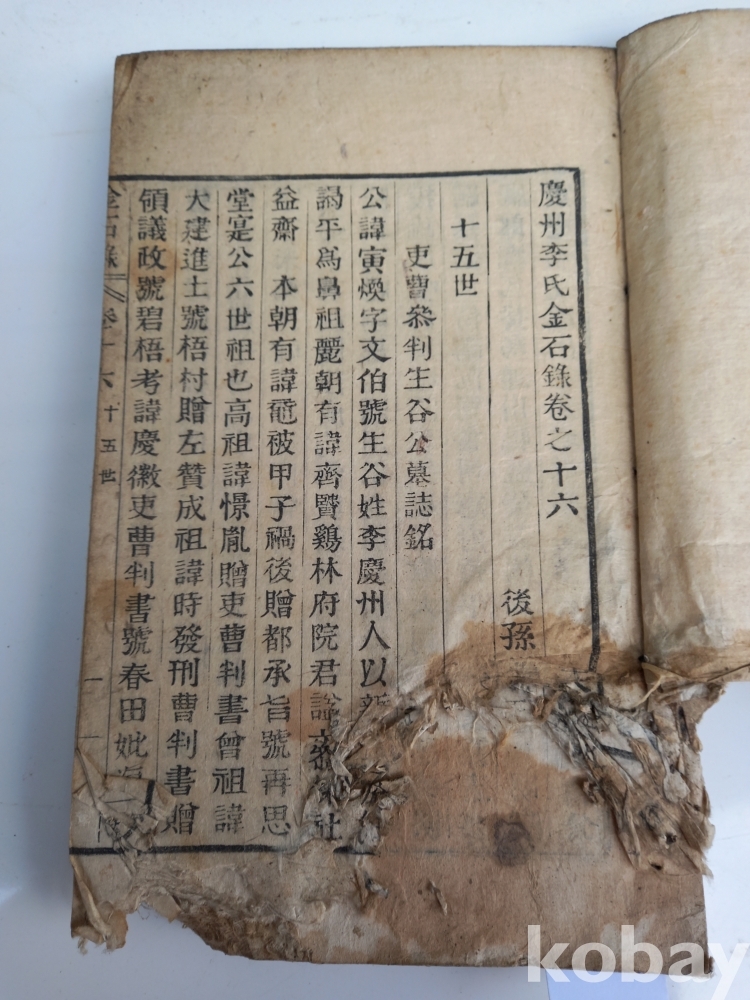 慶州李氏金石錄卷之十六
後孫
十五世
吏曹叅判生谷公墓誌銘
公諱寅煥字文伯號生谷姓李慶州人以新
謁平爲鼻祖麗朝有諱齊賢鷄林府院君諡
益齋 本朝有諱黿被甲子禍後贈都承旨號再思
堂寔公六世祖也高祖諱憬胤贈吏曹判書曾祖諱
大建進士號梧村贈左贊成祖諱時發刑曹判書贈
領議政號碧梧考諱慶徽吏曹判書號春田妣
金石錄 卷十六 十五世 一
kobay